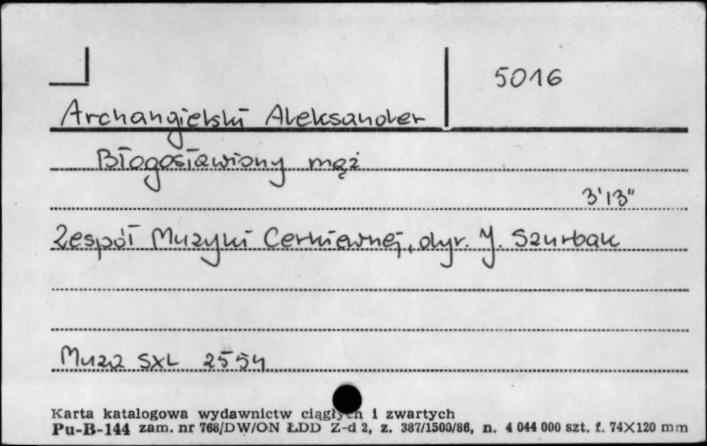 5016
Archangielski Aleksander
Błogosławiony mąż
3'13"
Zespół Muzyki Cerkiewnej, dyr. J. Szurbak
Muza SXL 2554
Karta katalogowa wydawnictw ciągłych i zwartych
Pu-B-144 zam. nr 768/DW/ON ŁDD Z-d 2, z. 387/1500/86, n. 4 044 000 szt. f. 74X120 mm